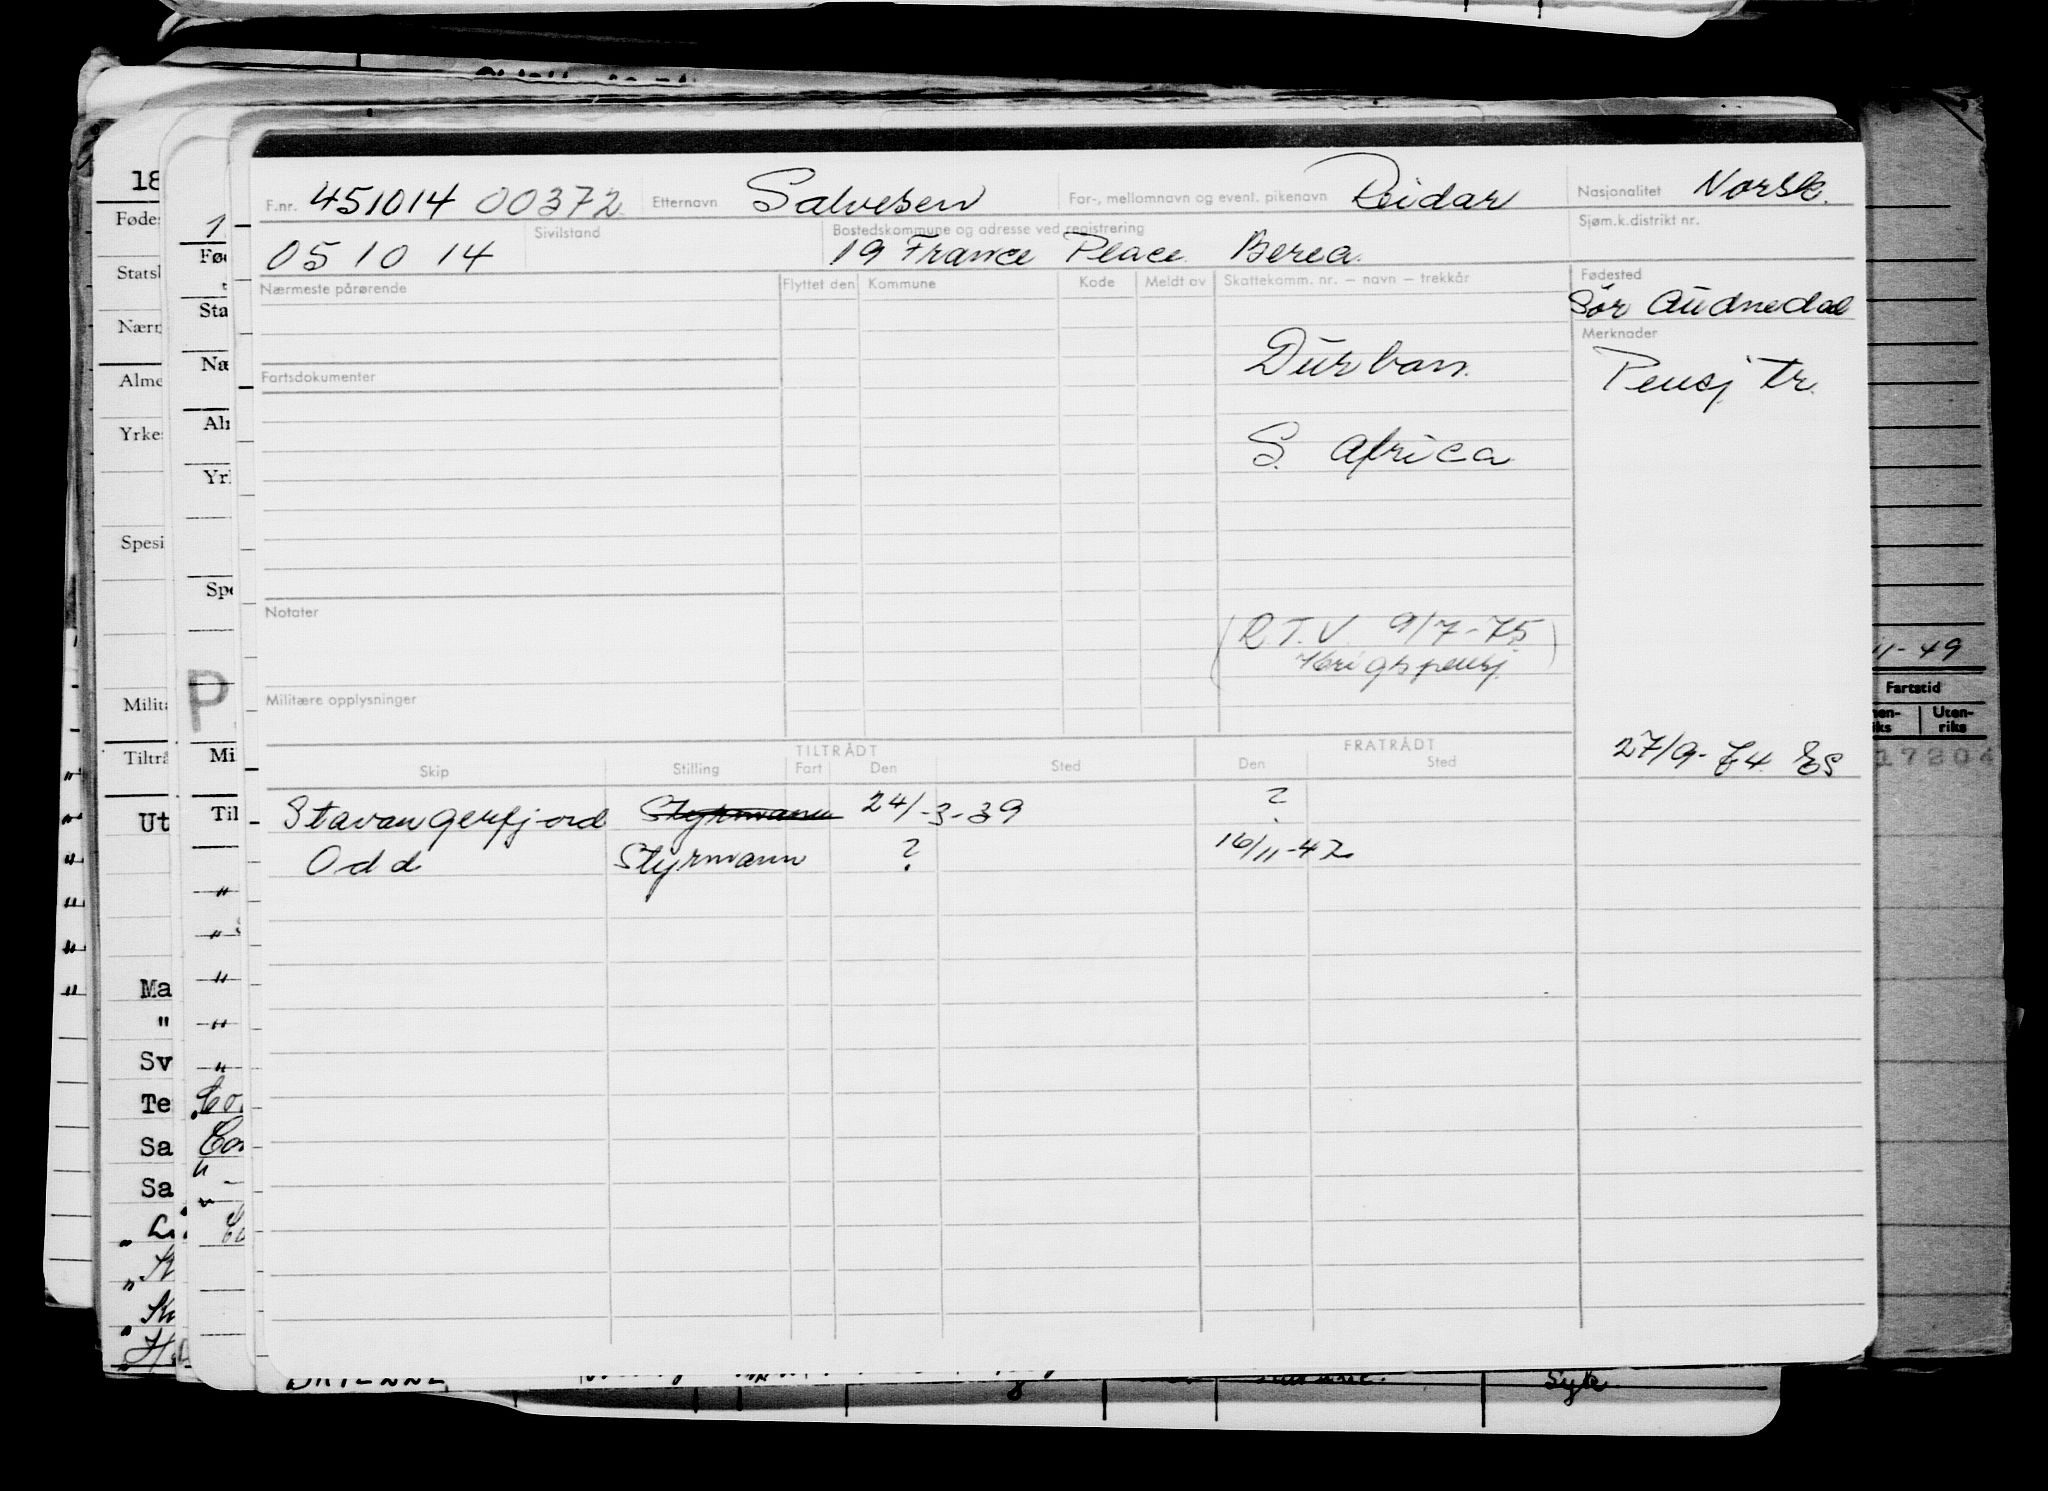 F.nr. 451014 00372 Etternavn Salvesen For-, mellomnavn og event. pikenavn Reidar Nasjonalitet Norsk.
05 10 14 Sivilstand Bostedskommune og adresse ved registrering 19 France Place Berea. Sjøm.k.distrikt nr.
Nærmeste pårørende Flyttet den Kommune Kode Meldt av Skattekomm. nr. — navn — trekkår Fødested
Sør Audnedal
Merknader
Durban. Pensj tr.
Fartsdokumenter
S. Africa
Notater
(R.T.V. 9/7-75
Krigspensj.)
Militære opplysninger
TILTRÅDT FRATRÅDT
Skip Stilling Fart Den Sted Den Sted
27/9-74 ES
Stavangerfjord Styrmann 24/-3-39 ?
Odd Styrmann ? 16/11-42
18
Fødes
Statsl
Nærn
Alme
Yrke
Spesi
Milit
Tiltrå
Ut
Ma
"
Sv
Te
Sa
Sa
1
Fø
Sta
Næ
Al
Yr
Spe
P
Mi
Til
Co
11-49
Fartstid
Uten-
riks
17204
Syk.